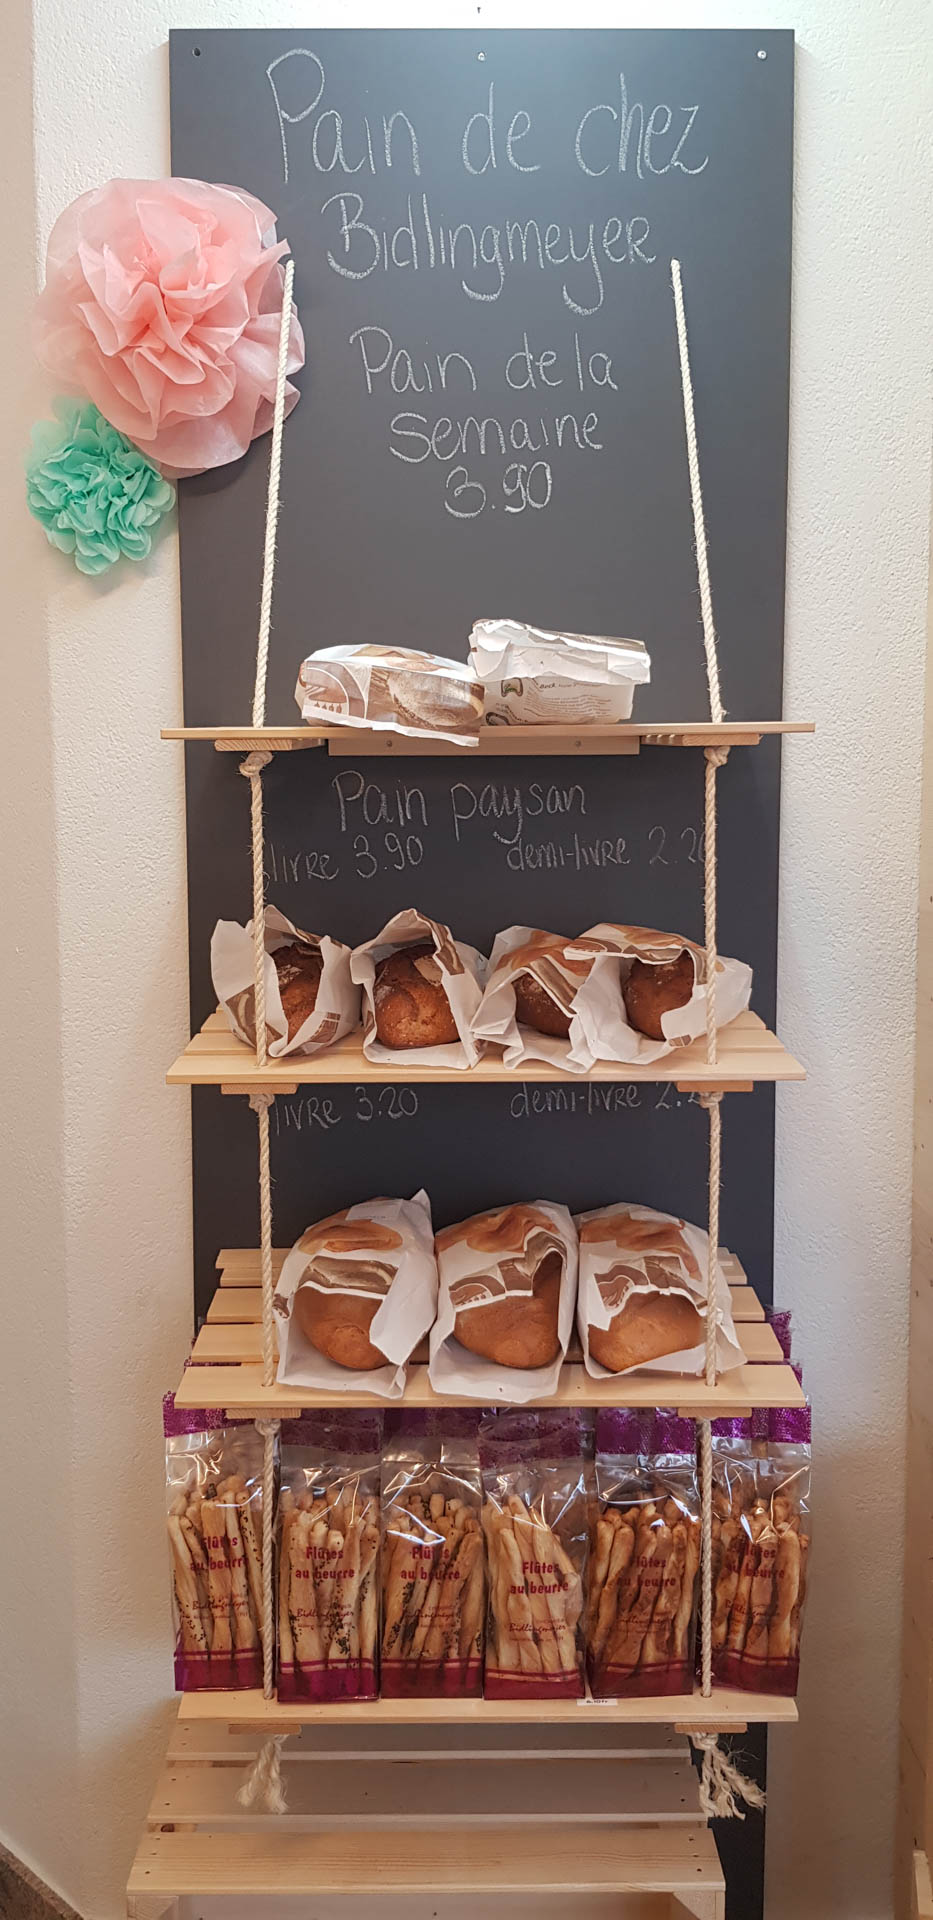 Pain de chez
Bidlingmeyer
Pain de la
semaine
3.90
Pain paysan
livre 3.90 demi-livre 2.20
livre 3.20 demi-livre
Flûtes
au beurre
Bidlingmeyer
Flûtes
au beurre
Bidlingmeyer
Flûtes
au beurre
Bidlingmeyer
Flûtes
au beurre
Bidlingmeyer
Flûtes
au beurre
Flûtes
au beurre
Bidlingmeyer